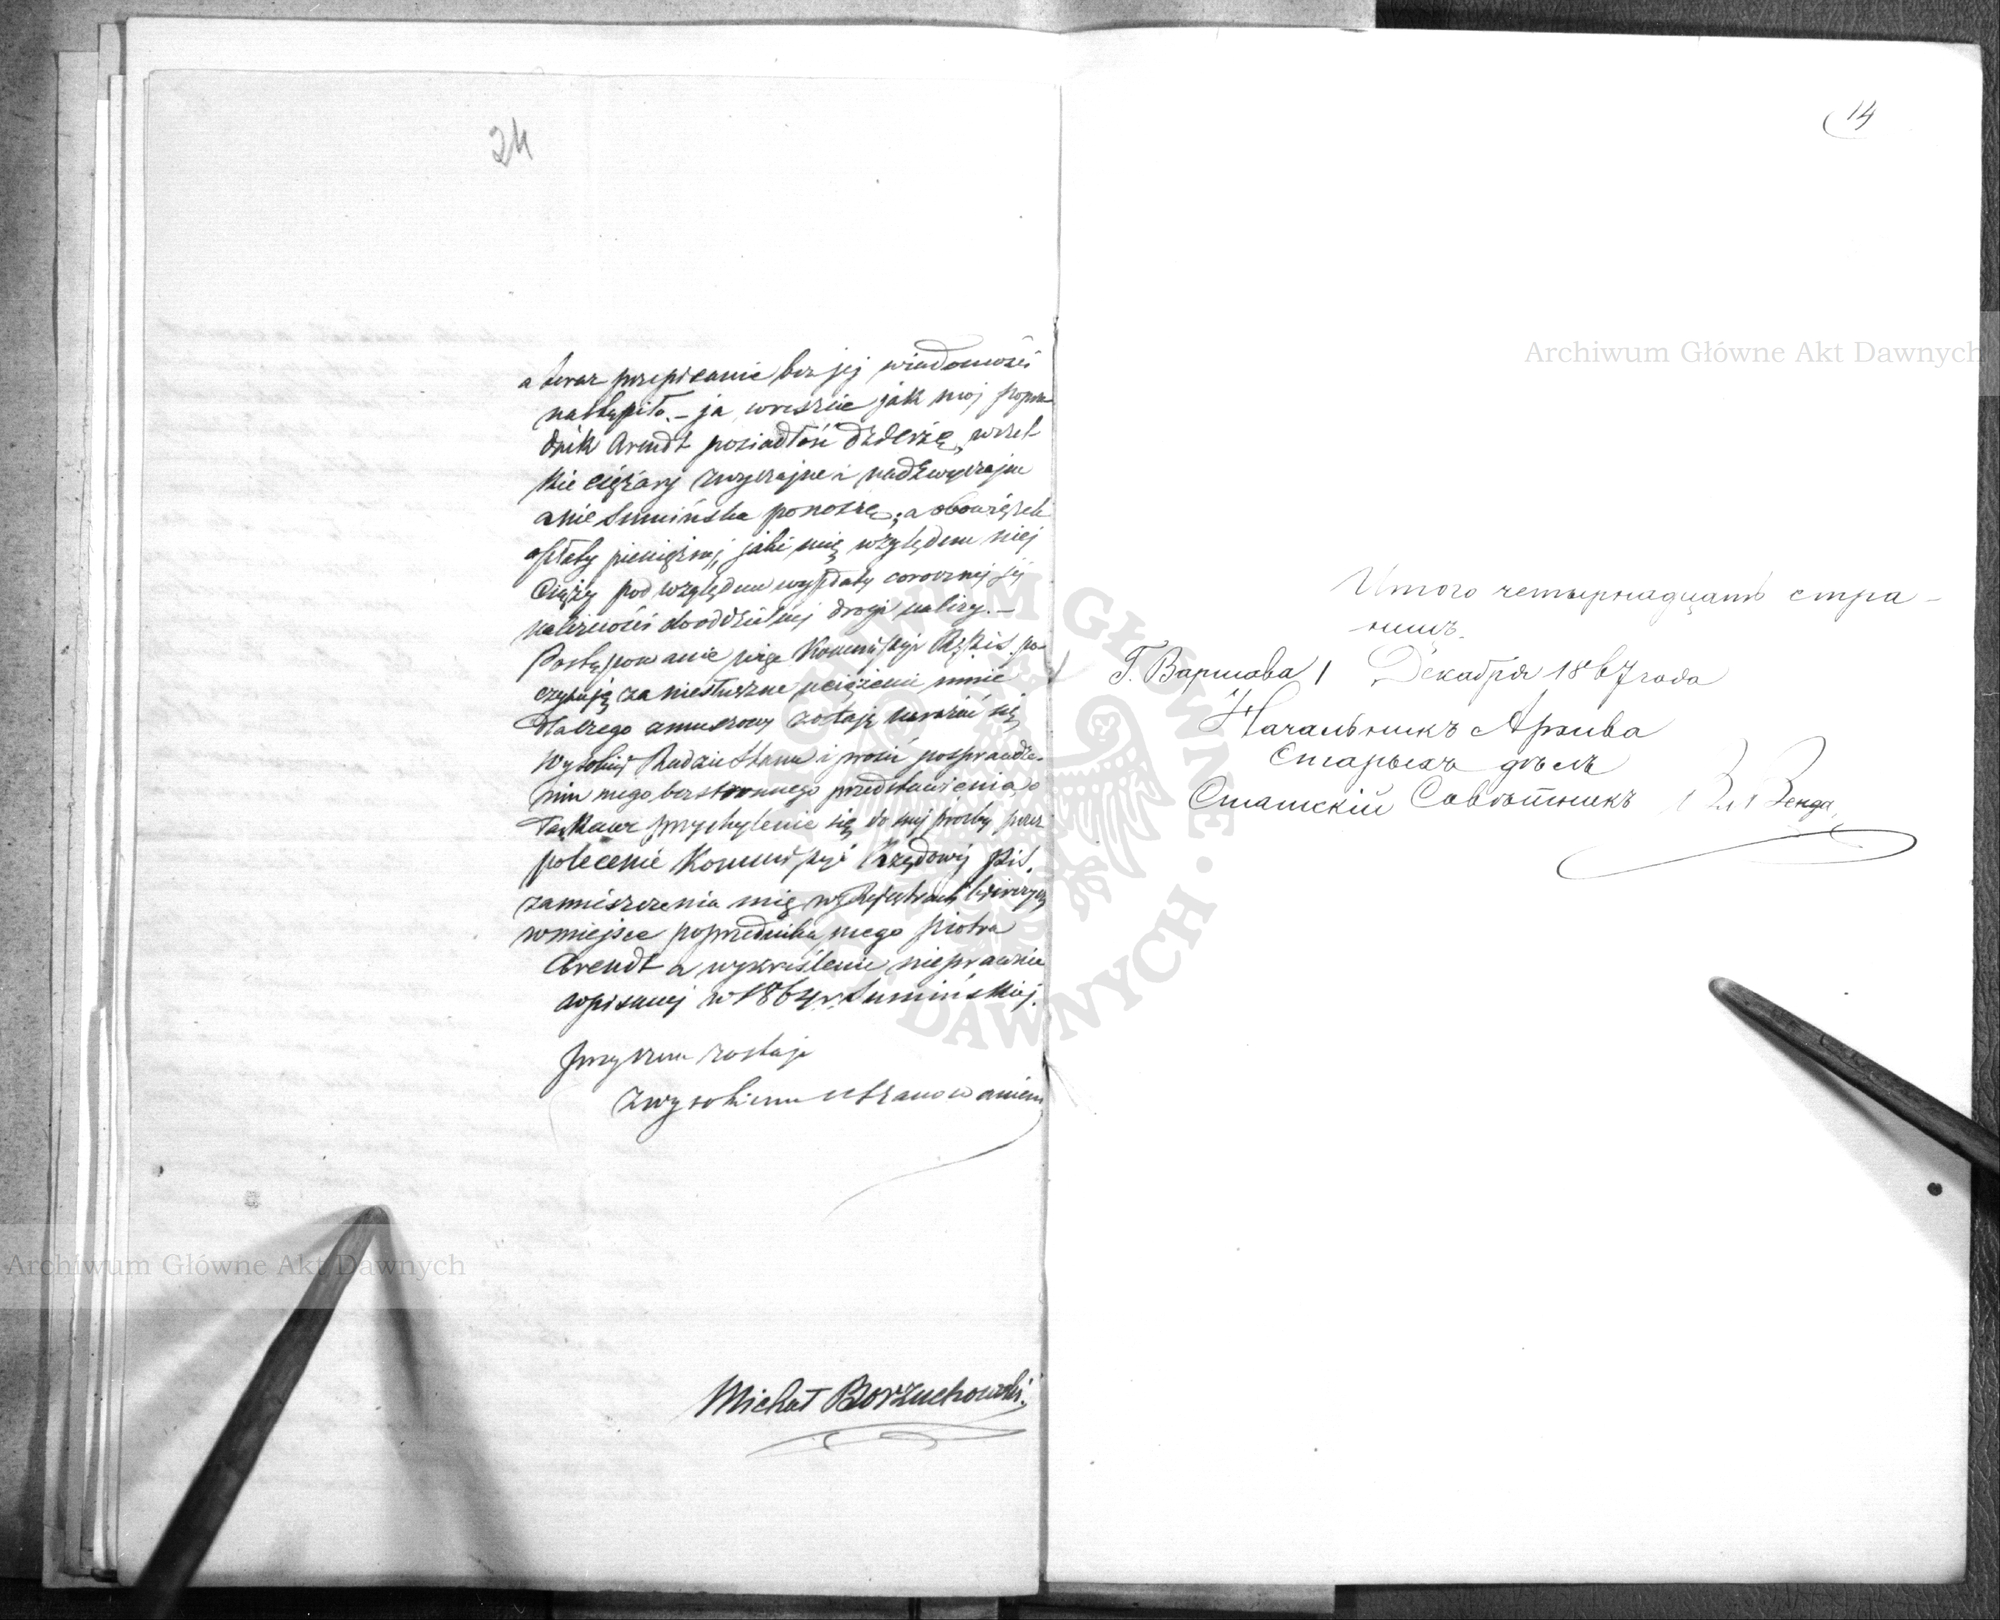 24
a teraz przepisanie bez jej wiadomości
nastąpiło. – ja wreszcie jak mój poprze
dnik Arendt posiadłość dzierżę, wszel-
kie ciężary zwyczajne i nadzwyczajne
a nie Sumińska ponoszę, a obowiązek
opłaty pieniężnej, jaki mię względem niej
ciąży pod względem wypłaty corocznej jej
należności do oddzielnej drogi należy. –
Postępowanie więc Kommissyi Rz: Kis. po-
czytuję za niesłuszne uciążenie mnie
dlaczego zmuszony zostaję udać się
Wysokiej Radzie Stanu i prosić po sprawdze-
niu mego bezstronnego przedstawienia, o
łaskawe przychylenie się do mej prośby przez
polecenie Kommissyi Rządowej
zamieszczenia mię w Rejestrach
w miejsce poprzednika mego Piotra
Arendt a wykreślenie nieprawnie
wpisanej w 1864 r. Sumińskiej.
Przyczem zostaję
z wysokiem uszanowaniem
Michał Borzuchowski.
14
Итого четырнадцать стра-
ницъ.
Г. Варшава 1 Декабря 1867 года
Начальникъ Архива
Старыхъ дѣлъ
Статскій Совѣтникъ Вл Венда
Archiwum Główne Akt Dawnych
Archiwum Główne Akt Dawnych
ARCHIWUM GŁÓWNE AKT DAWNYCH